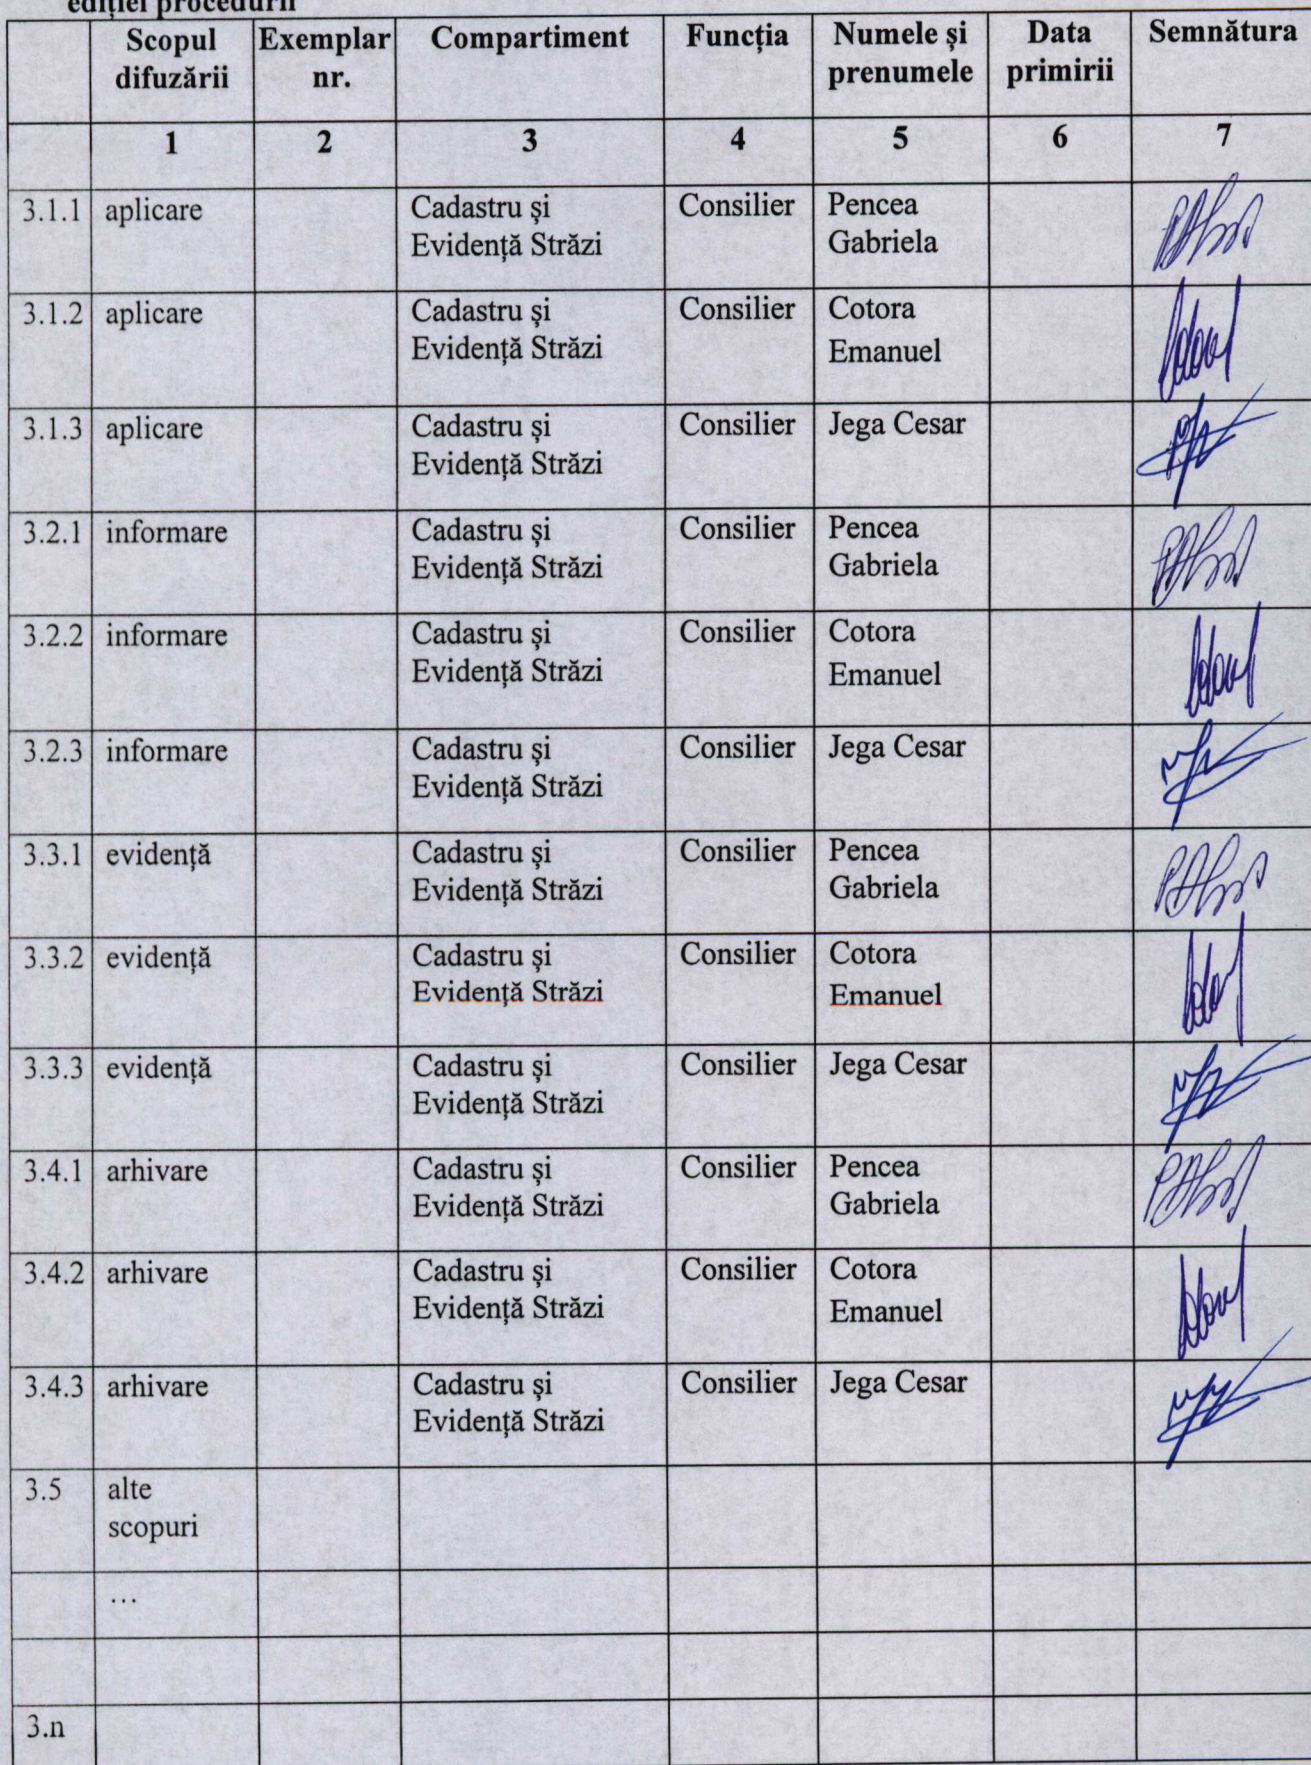 ediției procedurii
Scopul difuzării | Exemplar nr. | Compartiment | Funcția | Numele și prenumele | Data primirii | Semnătura
1 | 2 | 3 | 4 | 5 | 6 | 7
3.1.1 aplicare | Cadastru și Evidență Străzi | Consilier | Pencea Gabriela
3.1.2 aplicare | Cadastru și Evidență Străzi | Consilier | Cotora Emanuel
3.1.3 aplicare | Cadastru și Evidență Străzi | Consilier | Jega Cesar
3.2.1 informare | Cadastru și Evidență Străzi | Consilier | Pencea Gabriela
3.2.2 informare | Cadastru și Evidență Străzi | Consilier | Cotora Emanuel
3.2.3 informare | Cadastru și Evidență Străzi | Consilier | Jega Cesar
3.3.1 evidență | Cadastru și Evidență Străzi | Consilier | Pencea Gabriela
3.3.2 evidență | Cadastru și Evidență Străzi | Consilier | Cotora Emanuel
3.3.3 evidență | Cadastru și Evidență Străzi | Consilier | Jega Cesar
3.4.1 arhivare | Cadastru și Evidență Străzi | Consilier | Pencea Gabriela
3.4.2 arhivare | Cadastru și Evidență Străzi | Consilier | Cotora Emanuel
3.4.3 arhivare | Cadastru și Evidență Străzi | Consilier | Jega Cesar
3.5 alte scopuri
…
3.n